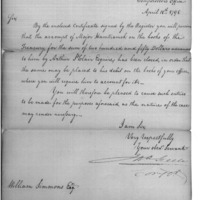 April 10th 1795
Sir
By the enclosed Certificate signed by the Register you will perceive
that the account of Major in the books of the
Treasury for the sum of two hundred and fifty Dollars
to him by Esquire, has been closed, in order that
the same may be placed to his debit on the books of your office
where you will require him to account for it.
You will therefore be pleased to cause such entries
to be made for the purposes aforesaid, as the nature of the case
may render necessary.
I am Sir
Very respectfully
Your obt Servant
William Simmons Esq